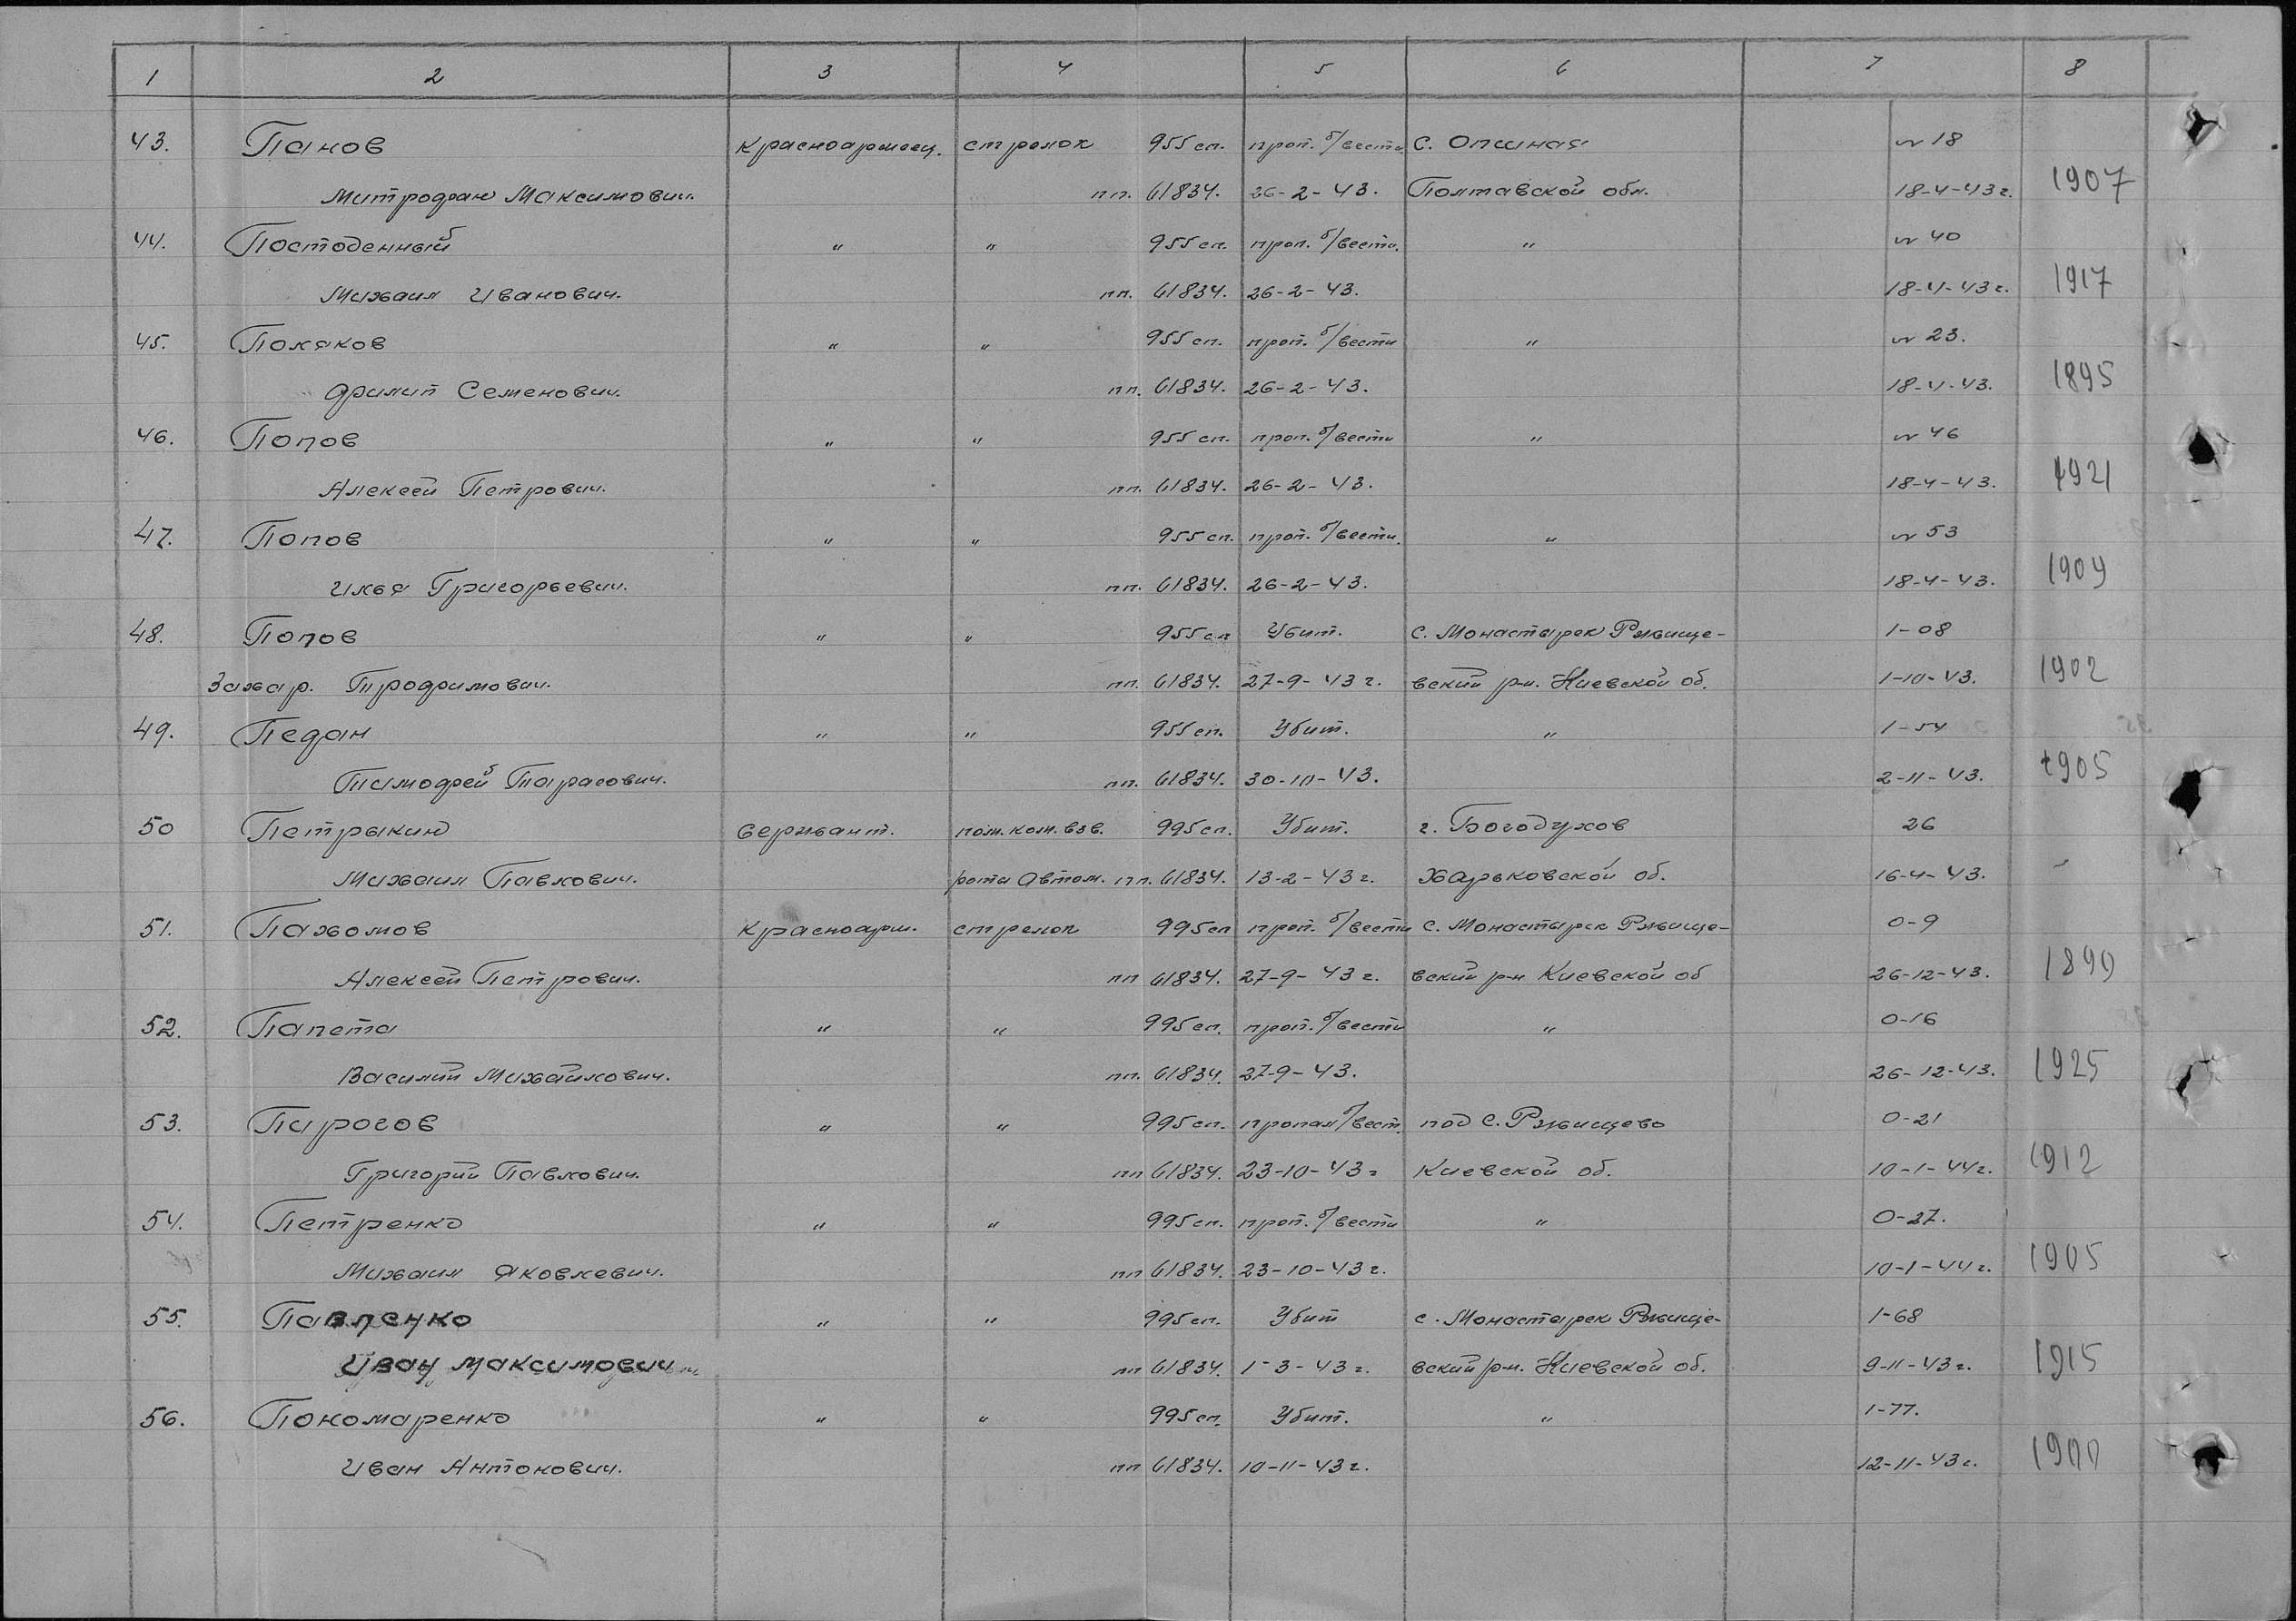 1 2 3 4 5 6 7 8
43. Панов красноармеец. стрелок 955 сп. проп. б/вести с. Опшная № 18
Митрофан Максимович. пп. 61834. 26-2-43. Полтавской обл. 18-4-43 г. 1907
44. Постоденный " " 955 сп. проп. б/вести. " № 40
Михаил Иванович. пп. 61834. 26-2-43. 18-4-43 г. 1917
45. Поляков " " 955 сп. проп. б/вести " № 23.
Филип Семенович. пп. 61834. 26-2-43. 18-4-43. 1895
46. Попов " " 955 сп. проп. б/вести " № 46
Алексей Петрович. пп. 61834. 26-2-43. 18-4-43. 1921
47. Попов " " 955 сп. проп. б/вести. " № 53
Илья Григорьевич. пп. 61834. 26-2-43. 18-4-43. 1909
48. Попов " " 955 сп Убит. с. Монастырек Ржище-
1-08
Захар. Трофимович. пп. 61834. 27-9-43 г. вский р-н. Киевской об. 1-10-43. 1902
49. Педан " " 955 сп. Убит. " 1-54
Тимофей Тарасович. пп. 61834. 30-10-43. 2-11-43. 1905
50 Петрыкин сержант. пом. ком. взв. 995 сп. Убит. г. Богодухов 26
Михаил Павлович. рота автом. пп. 61834. 13-2-43 г. Харьковской об. 16-4-43. -
51. Пахомов красноарм. стрелок 995 сп проп. б/вести с. Монастырек Ржище- 0-9
Алексей Петрович. пп 61834. 27-9-43 г. вский р-н Киевской об 26-12-43. 1899
52. Папета " " 995 сп. проп. б/вести " 0-16
Василий Михайлович. пп. 61834. 27-9-43. 26-12-43. 1925
53. Пирогов " " 995 сп. пропал б/вест. под с. Ржищево 0-21
Григорий Павлович. пп 61834. 23-10-43 г Киевской об. 10-1-44 г. 1912
54. Петренко " " 995 сп. проп. б/вести " 0-27.
Михаил Яковлевич. пп 61834. 23-10-43 г. 10-1-44 г. 1905
55. Павленко " " 995 сп. Убит с. Монастырек Ржище- 1-68
Иван Максимович пп 61834. 1-3-43 г. вский р-н. Киевской об. 9-11-43 г. 1915
56. Пономаренко " " 995 сп. Убит. " 1-77.
Иван Антонович. пп 61834. 10-11-43 г. 12-11-43 г. 1900